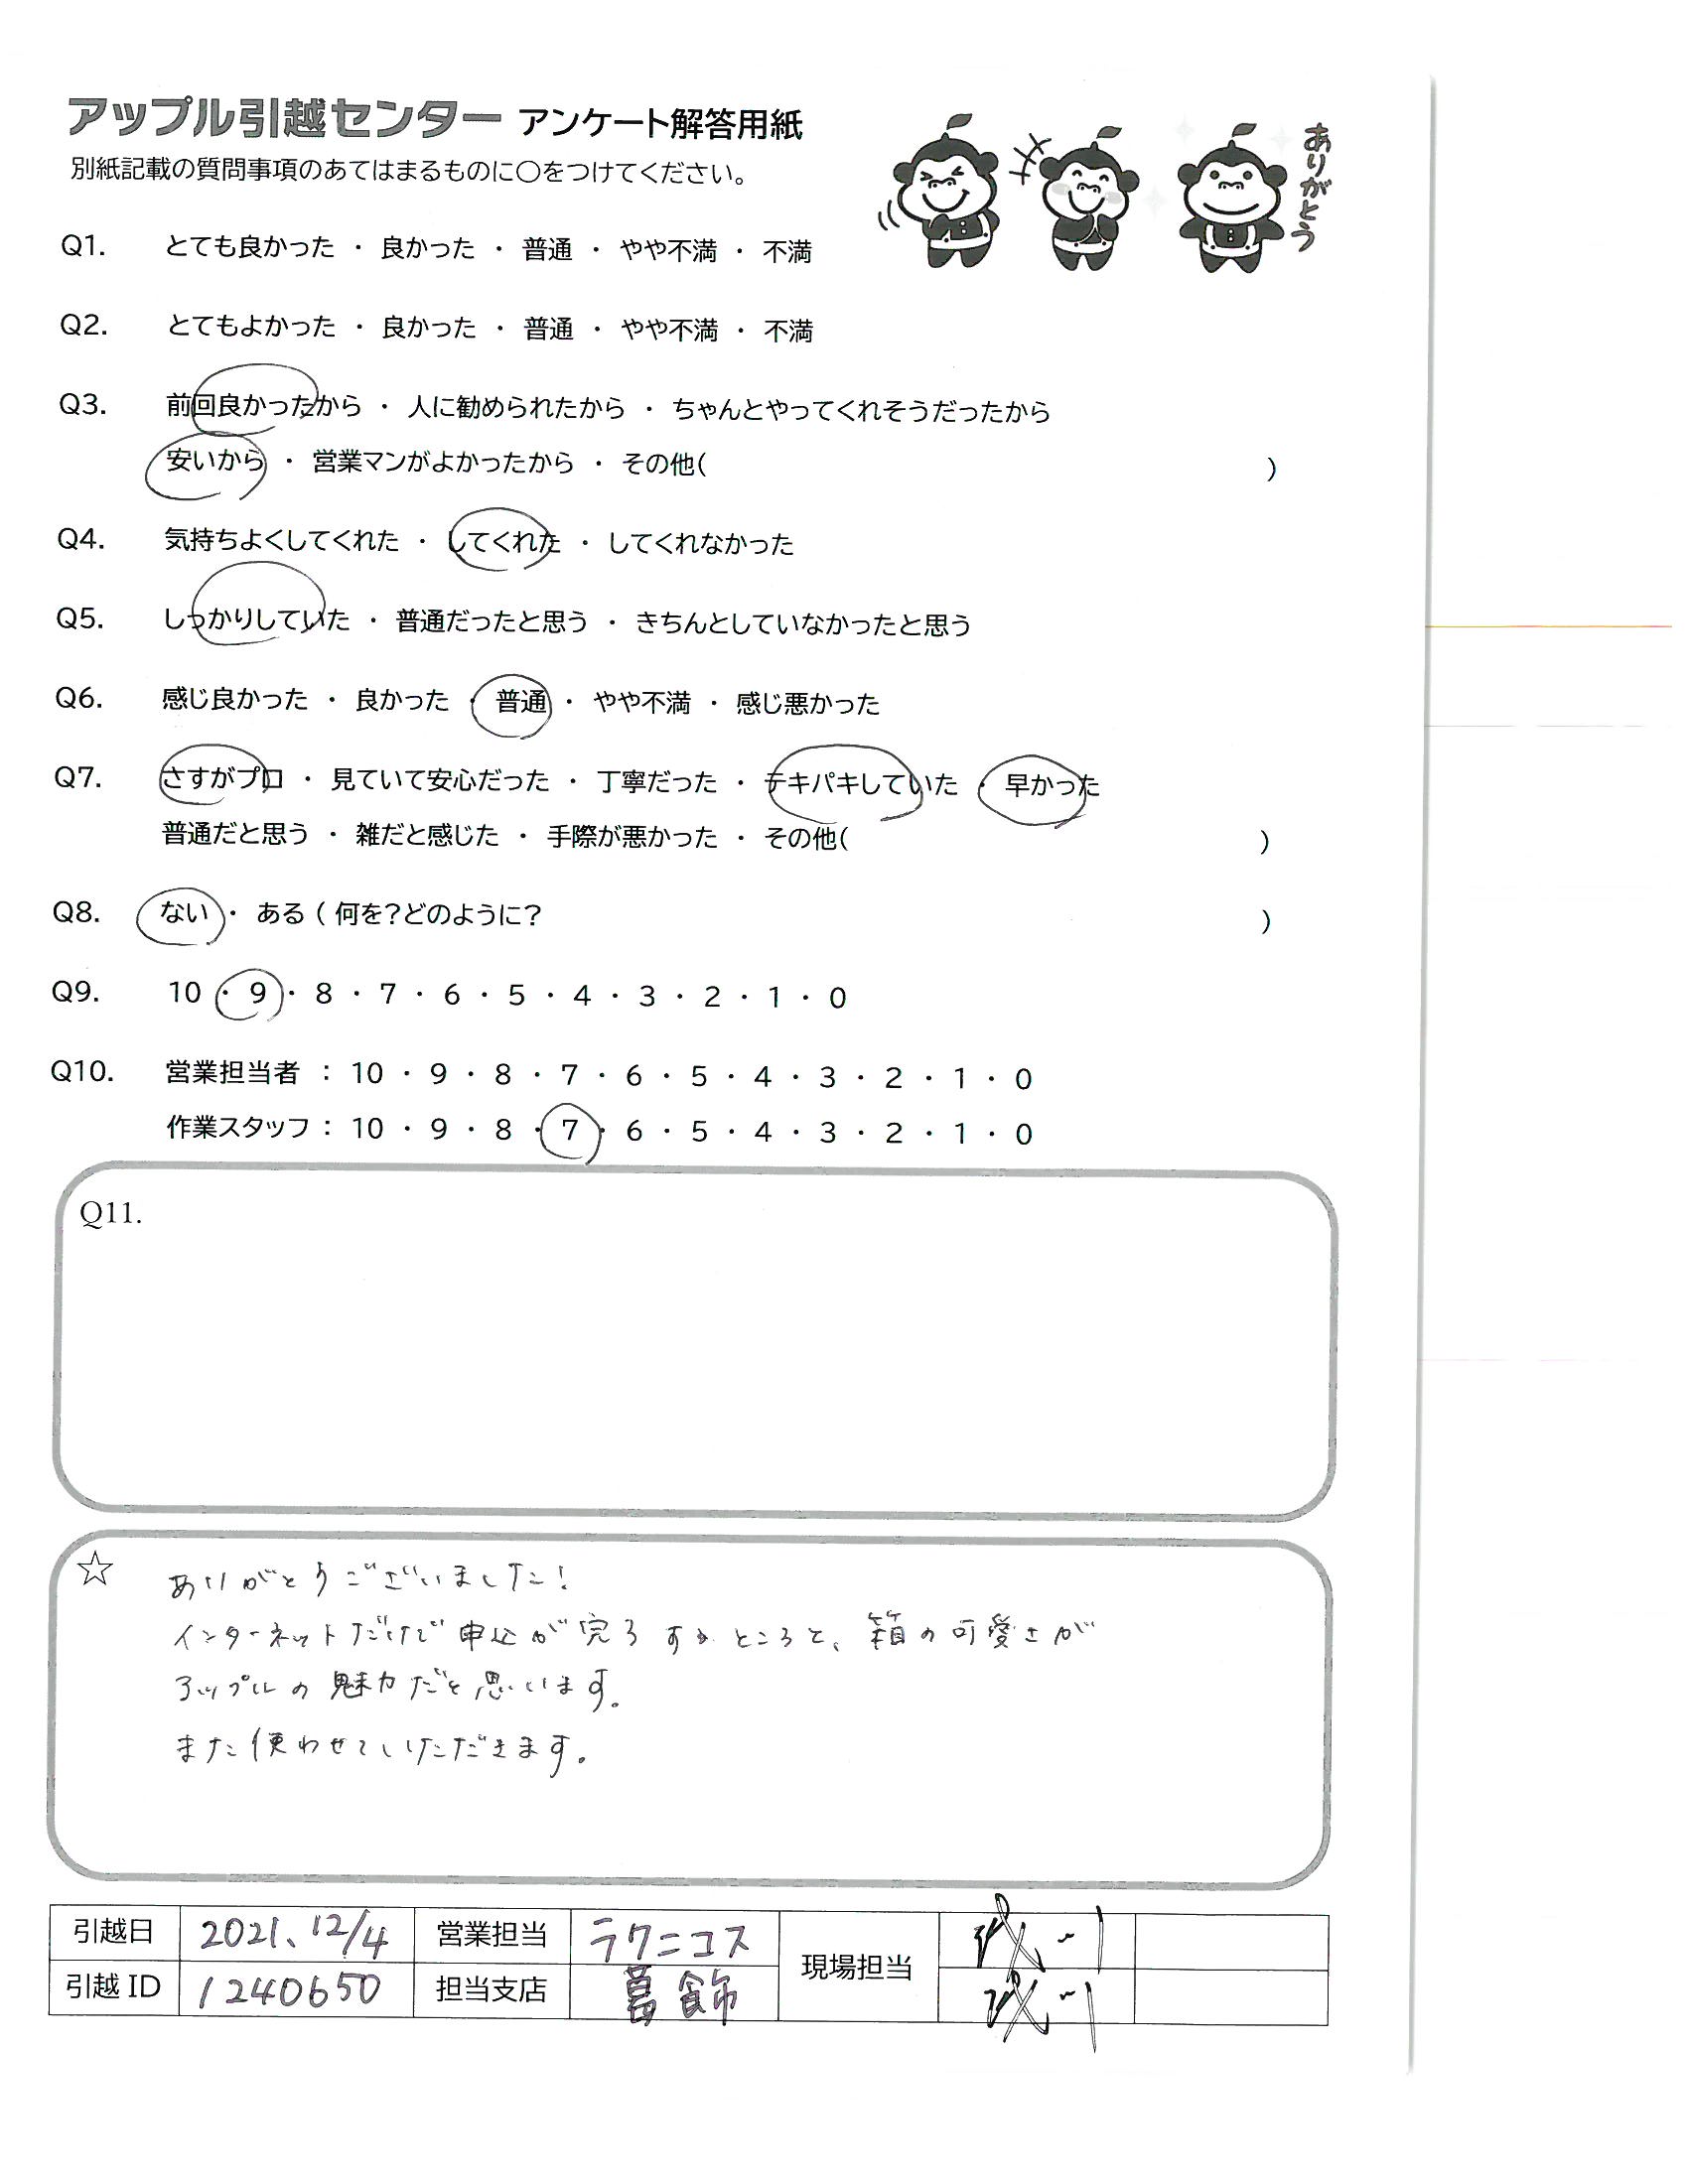 アップル引越センター アンケート解答用紙
別紙記載の質問事項のあてはまるものに○をつけてください。
ありがとう
Q1. とても良かった ・ 良かった ・ 普通 ・ やや不満 ・ 不満
Q2. とてもよかった ・ 良かった ・ 普通 ・ やや不満 ・ 不満
Q3. 前回良かったから ・ 人に勧められたから ・ ちゃんとやってくれそうだったから
安いから ・ 営業マンがよかったから ・ その他( )
Q4. 気持ちよくしてくれた ・ してくれた ・ してくれなかった
Q5. しっかりしていた ・ 普通だったと思う ・ きちんとしていなかったと思う
Q6. 感じ良かった ・ 良かった ・ 普通 ・ やや不満 ・ 感じ悪かった
Q7. さすがプロ ・ 見ていて安心だった ・ 丁寧だった ・ テキパキしていた ・ 早かった
普通だと思う ・ 雑だと感じた ・ 手際が悪かった ・ その他( )
Q8. ない ・ ある ( 何を?どのように? )
Q9. 10 ・ 9 ・ 8 ・ 7 ・ 6 ・ 5 ・ 4 ・ 3 ・ 2 ・ 1 ・ 0
Q10. 営業担当者 : 10 ・ 9 ・ 8 ・ 7 ・ 6 ・ 5 ・ 4 ・ 3 ・ 2 ・ 1 ・ 0
作業スタッフ : 10 ・ 9 ・ 8 ・ 7 ・ 6 ・ 5 ・ 4 ・ 3 ・ 2 ・ 1 ・ 0
Q11.
☆ ありがとうございました!
インターネットだけで申込が完了するところと、箱の可愛さが
アップルの魅力だと思います。
また使わせていただきます。
引越日 2021、12/4 営業担当 ラクニコス 現場担当
引越ID 1240650 担当支店 葛飾